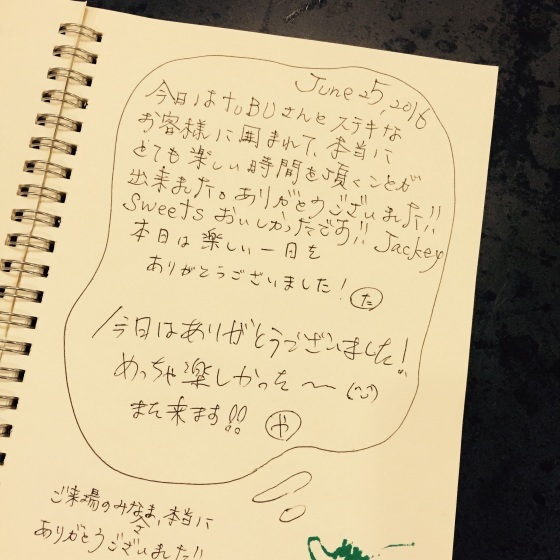 June 25, 2016
今日はtoBUさんとステキな
お客様に囲まれて、本当に
とても楽しい時間を頂くことが
出来ました。ありがとうございました!!
Sweetsおいしかったです!! Jackey
本日は楽しい一日を
ありがとうございました! た
今日はありがとうございました!
めっちゃ楽しかった〜 (^^)
また来ます!! や
ご来場のみなさま、本当に
ありがとうございました!!